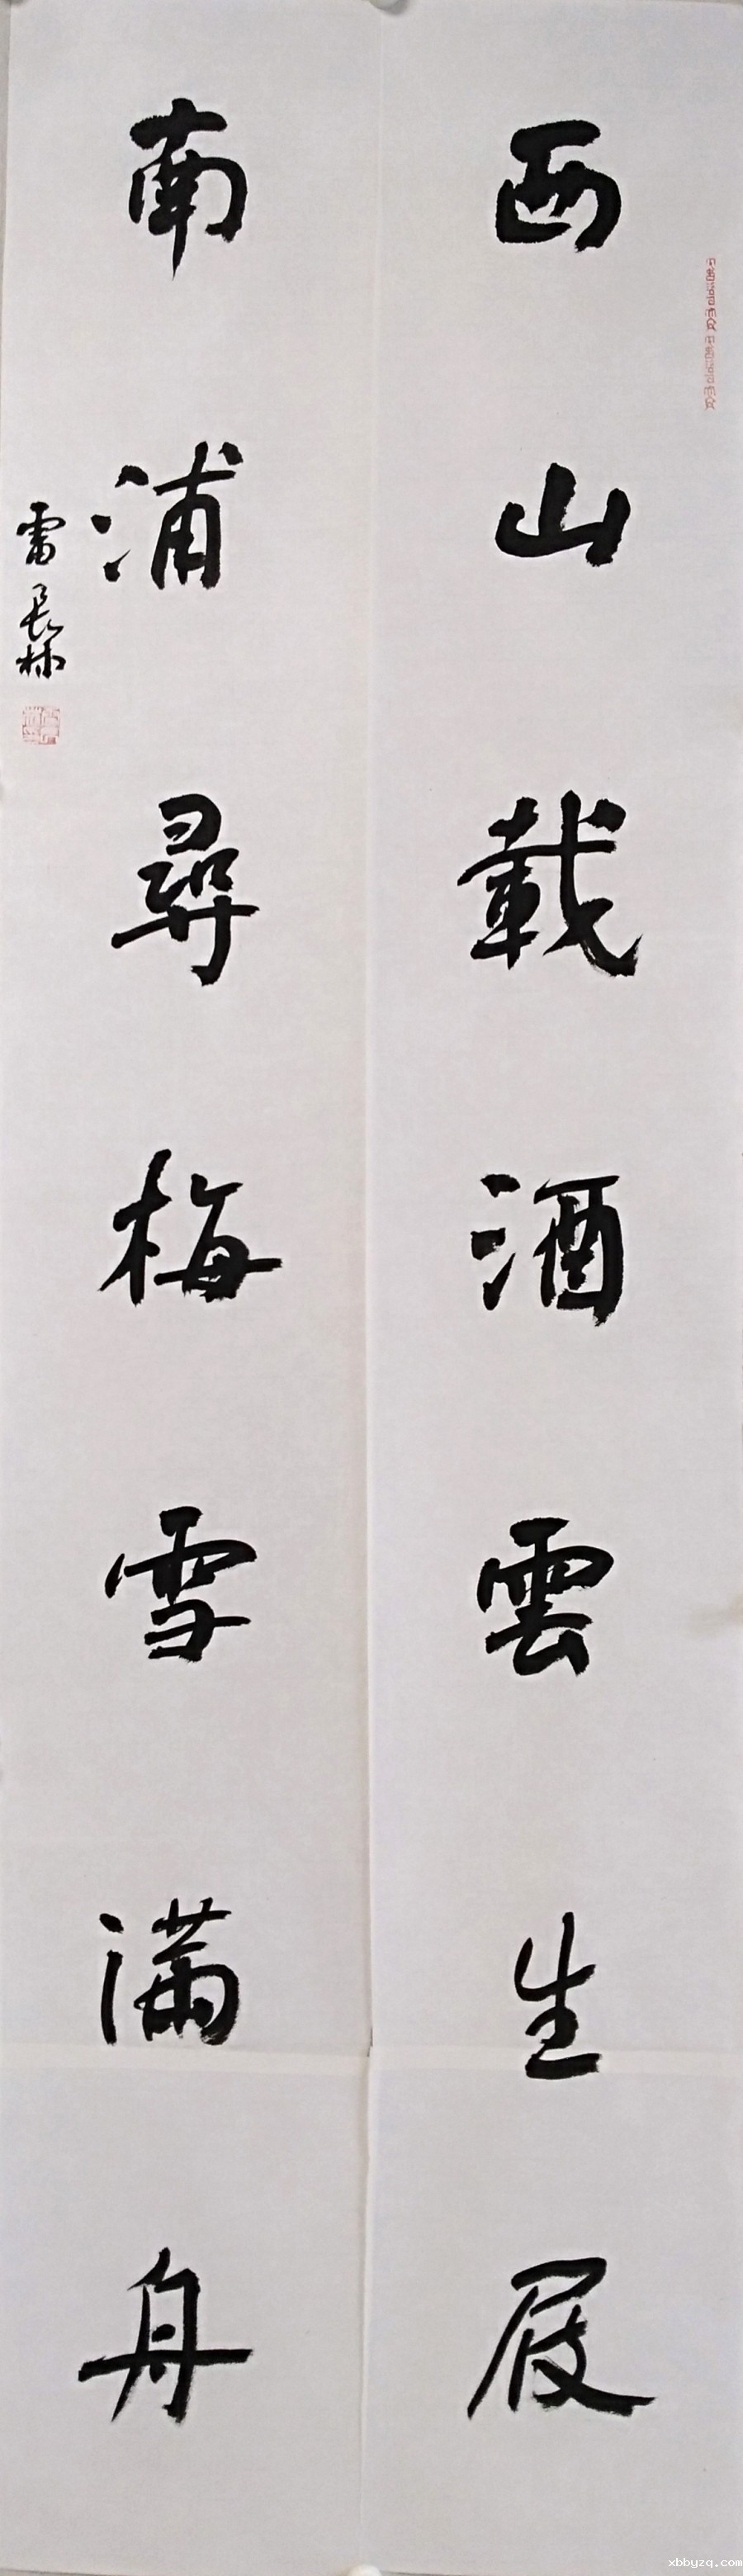 西山載酒雲生屐
南浦尋梅雪滿舟
雷長林
xbbyzq.com